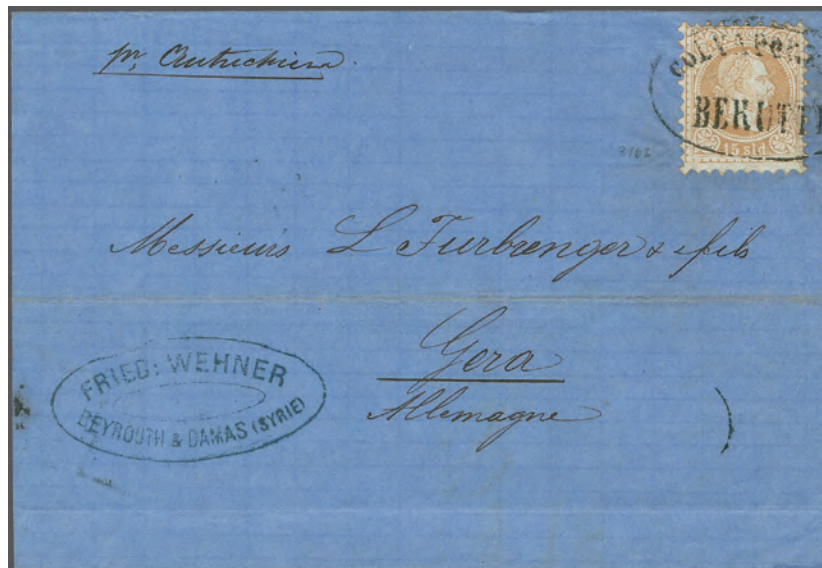 pr. Autrichien.
COL VAPORE
BERUTTI
15 sld
3762
Messieurs L Furbrenger & fils
Gera
Allemagne
FRIED: WEHNER
BEYROUTH & DAMAS (SYRIE)